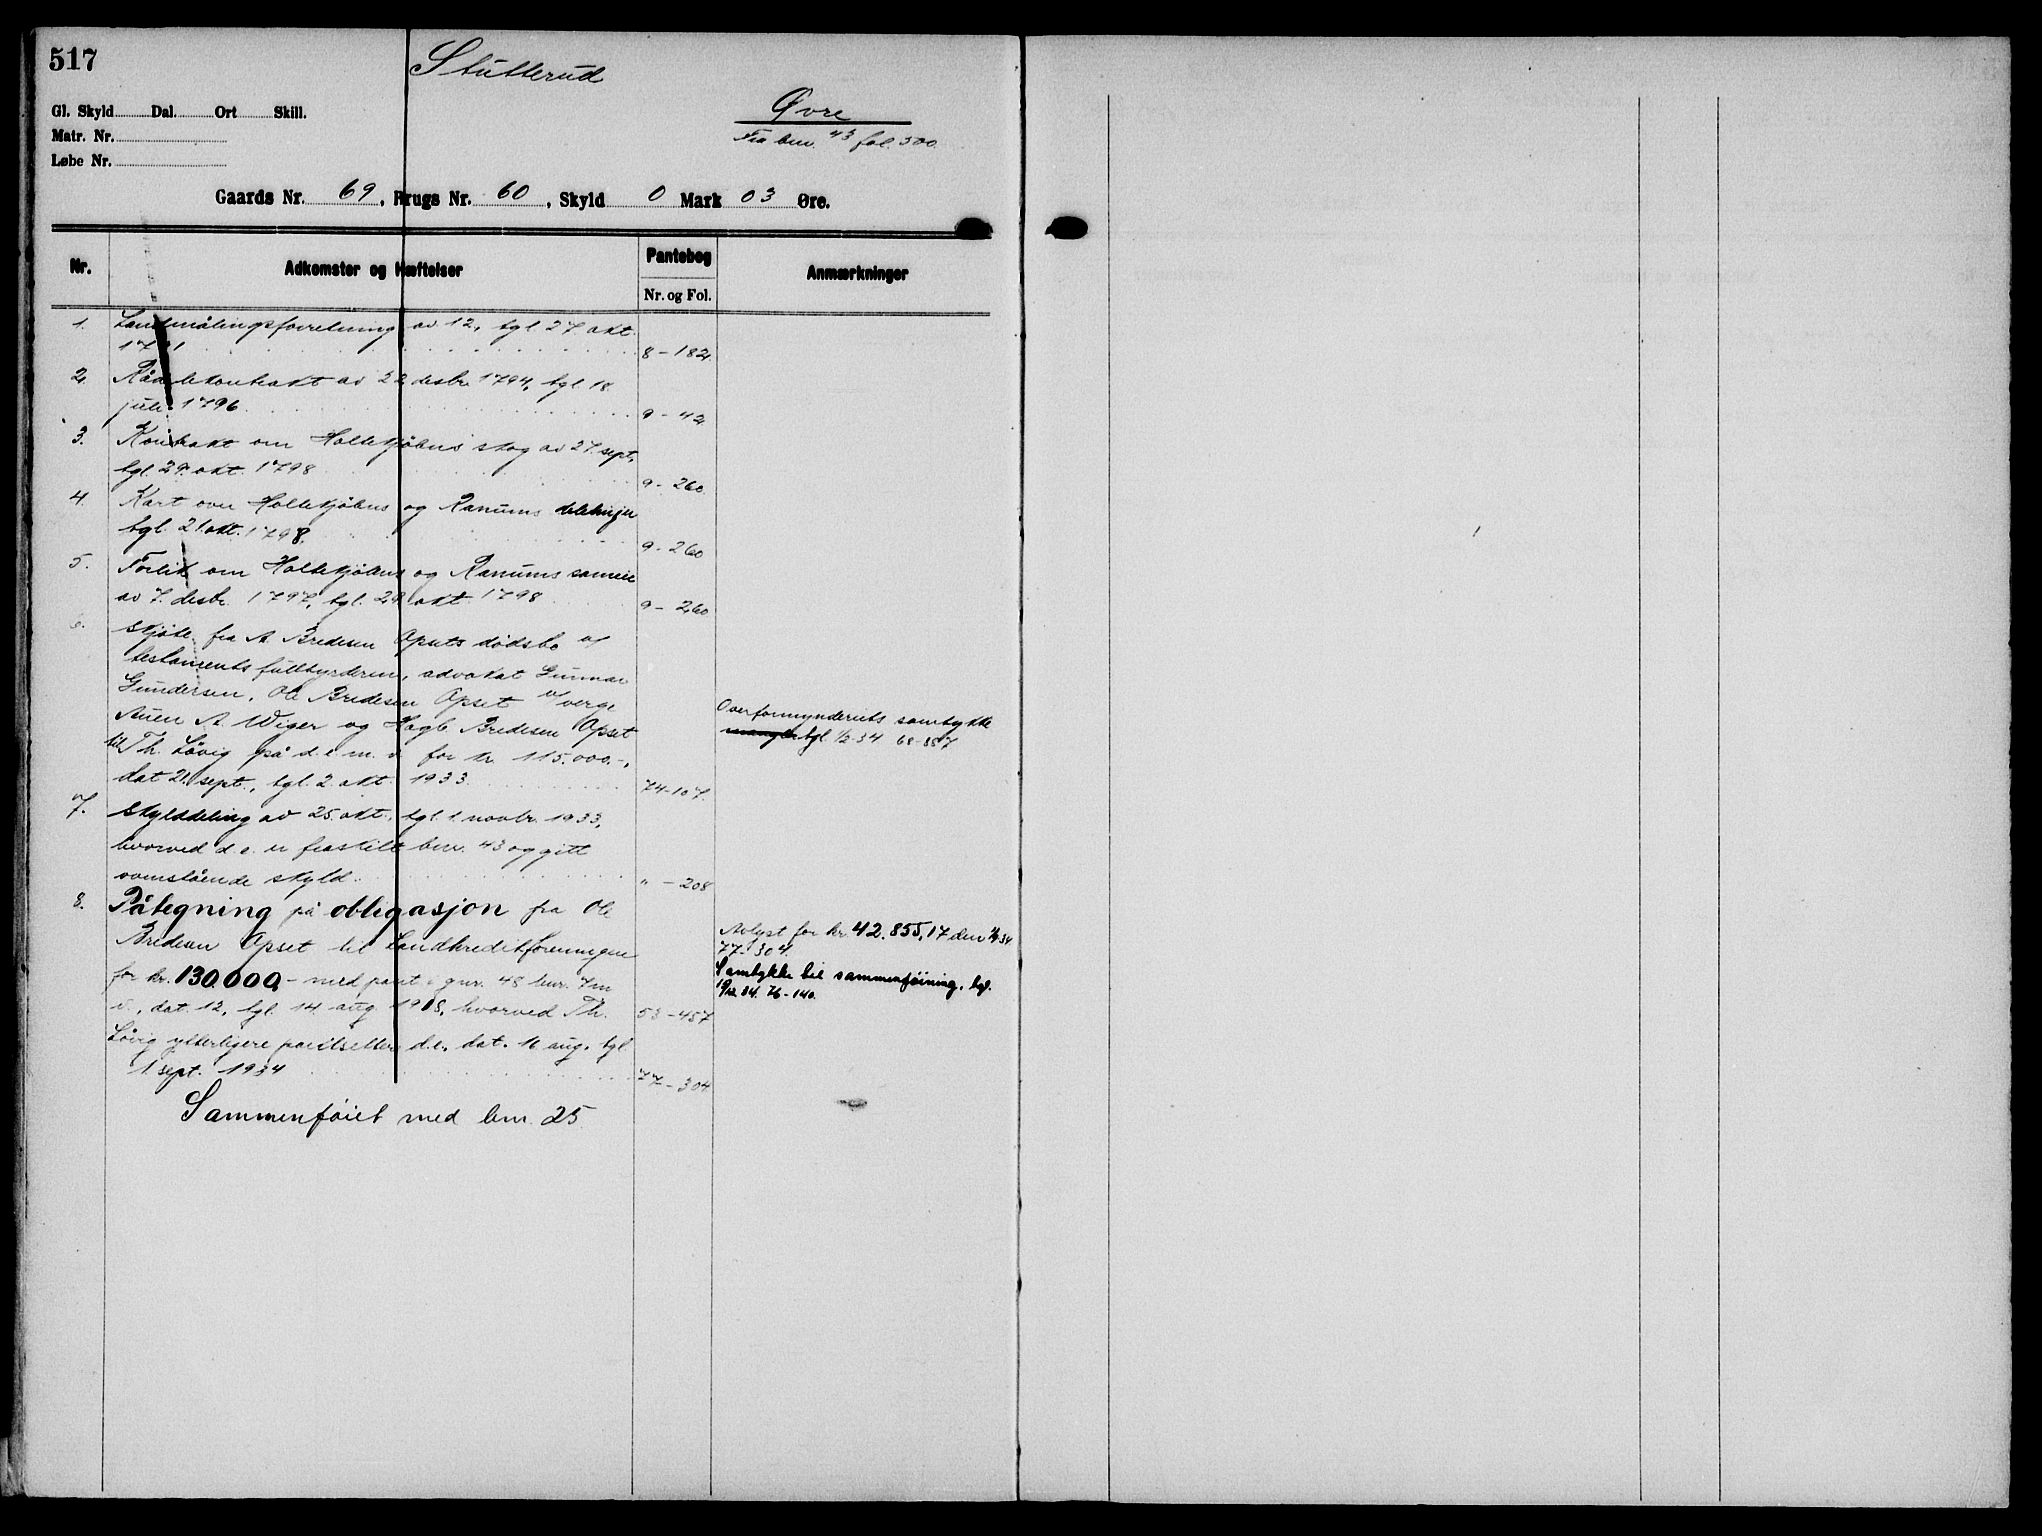 517
Stutterud
Gl. Skyld Dal. Ort Skill.
Matr. Nr.
Løbe Nr.
Øvre
Fra bnr. 43 fol. 500.
Gaards Nr. 69, Brugs Nr. 60, Skyld 0 Mark 03 Øre.
Nr. Adkomster og Hæftelser Pantebog Nr. og Fol. Anmærkninger
1. Landmålingsforretning av 12, tgl. 27 okt.
8-182
2. kontrakt av 22 desbr. 1794, tgl. 18
juli 1796 9-42
3. Kontrakt om Holtekjølens skog av 27. sept,
tgl. 29. okt. 1798 9-260
4. Kart over Holtekjølens og Ranums
tgl. 21. okt. 1798. 9-260
5. Forlik om Holtekjølens og Ranums sameie
av 7. desbr. 1797, tgl. 29 okt 1798 9-260
6. Skjøte fra A. Bredesen Opsets dødsbo v/
testamentsfullbyrderen, advokat Gunnar
Gundersen, Ole Bredesen Opset v/ verge
A. Wiger og Hagb. Bredesen Opset
til Th. Løvig på d.e. m. v. for kr. 115.000.-,
dat 21. sept., tgl. 2. okt. 1933. 74-107.
Overformynderiets samtykke
mangler tgl. 1/2-34 68-887
7. Skylddeling av 25. okt., tgl. 1. novbr. 1933,
hvorved d.e. er fraskilt bnr. 43 og gitt
ovenstående skyld. " - 208
8. Påtegning på obligasjon fra Ole
Bredesen Opset til Landkreditforeningen
for kr. 130.000.- med pant i gnr. 48 bnr. 7 m
v., dat. 12, tgl. 14 aug. 1918, hvorved Th. 53-457
Løvig ytterligere pantsetter d.e., dat. 16 aug. tgl.
1 sept. 1934 77-304
Avlyst for kr. 42.855,17 den 1/9 34
77-304.
Samtykke til sammenføining, tgl.
19/12 34. 76-140.
Sammenføiet med bnr. 25